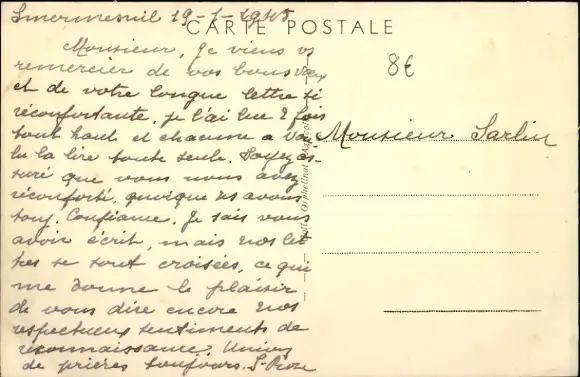 Smermesnil 19-1-1945
CARTE POSTALE
8€
Monsieur, Je viens vs
remercier de vos bons vœux
et de votre longue lettre si
réconfortante, je l'ai lue 2 fois
tout haut et chacune a voulu
lu la lire toute seule. Soyez as-
suré que vous nous avez
réconforté, quoique ns avons
touj. Confiance. Je sais vous
avoir écrit, mais nos let
tres se sont croisées, ce qui
me donne le plaisir
de vous dire encore nos
respectueux sentiments de
reconnaissance. Union
de prières toujours. Sr
Monsieur Sarlin
Orphelinat